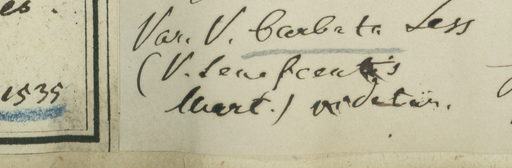 es.
Var. V. barbata Less
(V. senescentis
Mart.) videtur.
1535